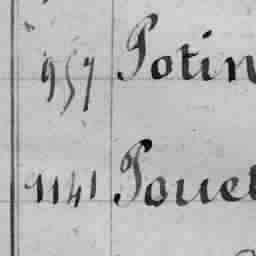 957 Potin
1141 Pouet